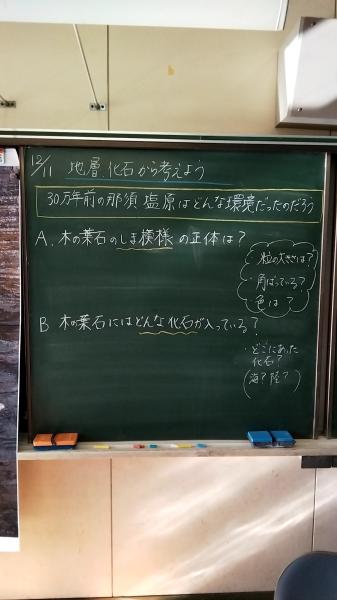 12/11 地層、化石から考えよう
30万年前の那須塩原はどんな環境だったのだろう
A. 木の葉石のしま模様の正体は?
・粒の大きさは?
・角ばっている?
・色は?
B 木の葉石にはどんな化石が入っている?
・どこにあった
化石?
(海?陸?)